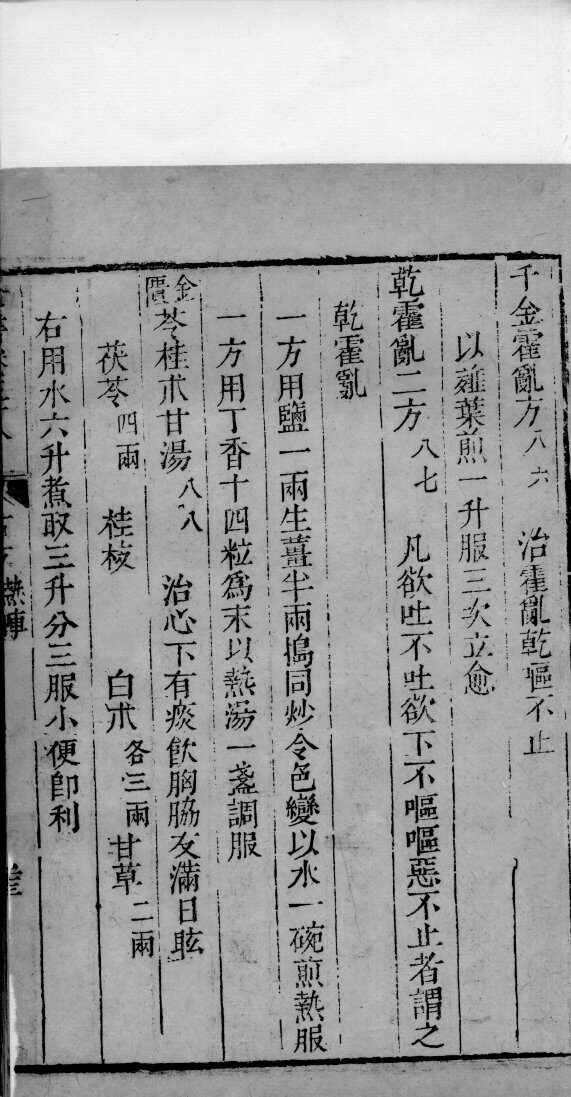 千金霍亂方八六　治霍亂乾嘔不止
以薤葉煎一升服三次立愈
乾霍亂二方八七　凡欲吐不吐欲下不嘔嘔惡不止者謂之
乾霍亂
一方用鹽一兩生薑半兩搗同炒令色變以水一碗煎熱服
一方用丁香十四粒爲末以熱湯一盞調服
金匱苓桂朮甘湯八八　治心下有痰飲胸脇支滿目眩
茯苓四兩　桂枝　白朮各三兩　甘草二兩
右用水六升煮取三升分三服小便即利
古方　熱陣